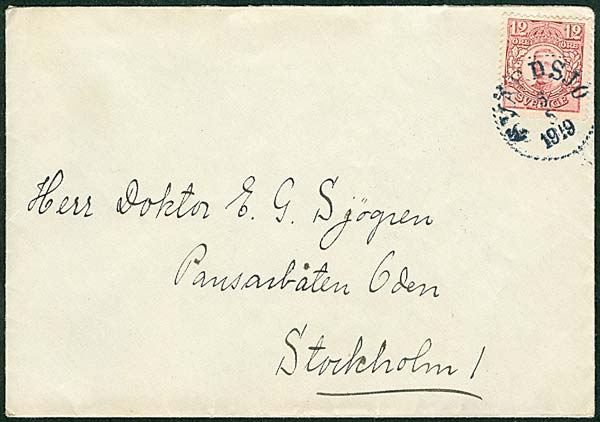 12 12
ÖRE ÖRE
SVERIGE
DSJÖ
1919
Herr Doktor E. G. Sjögren
Pansarbåten Oden
Stockholm 1